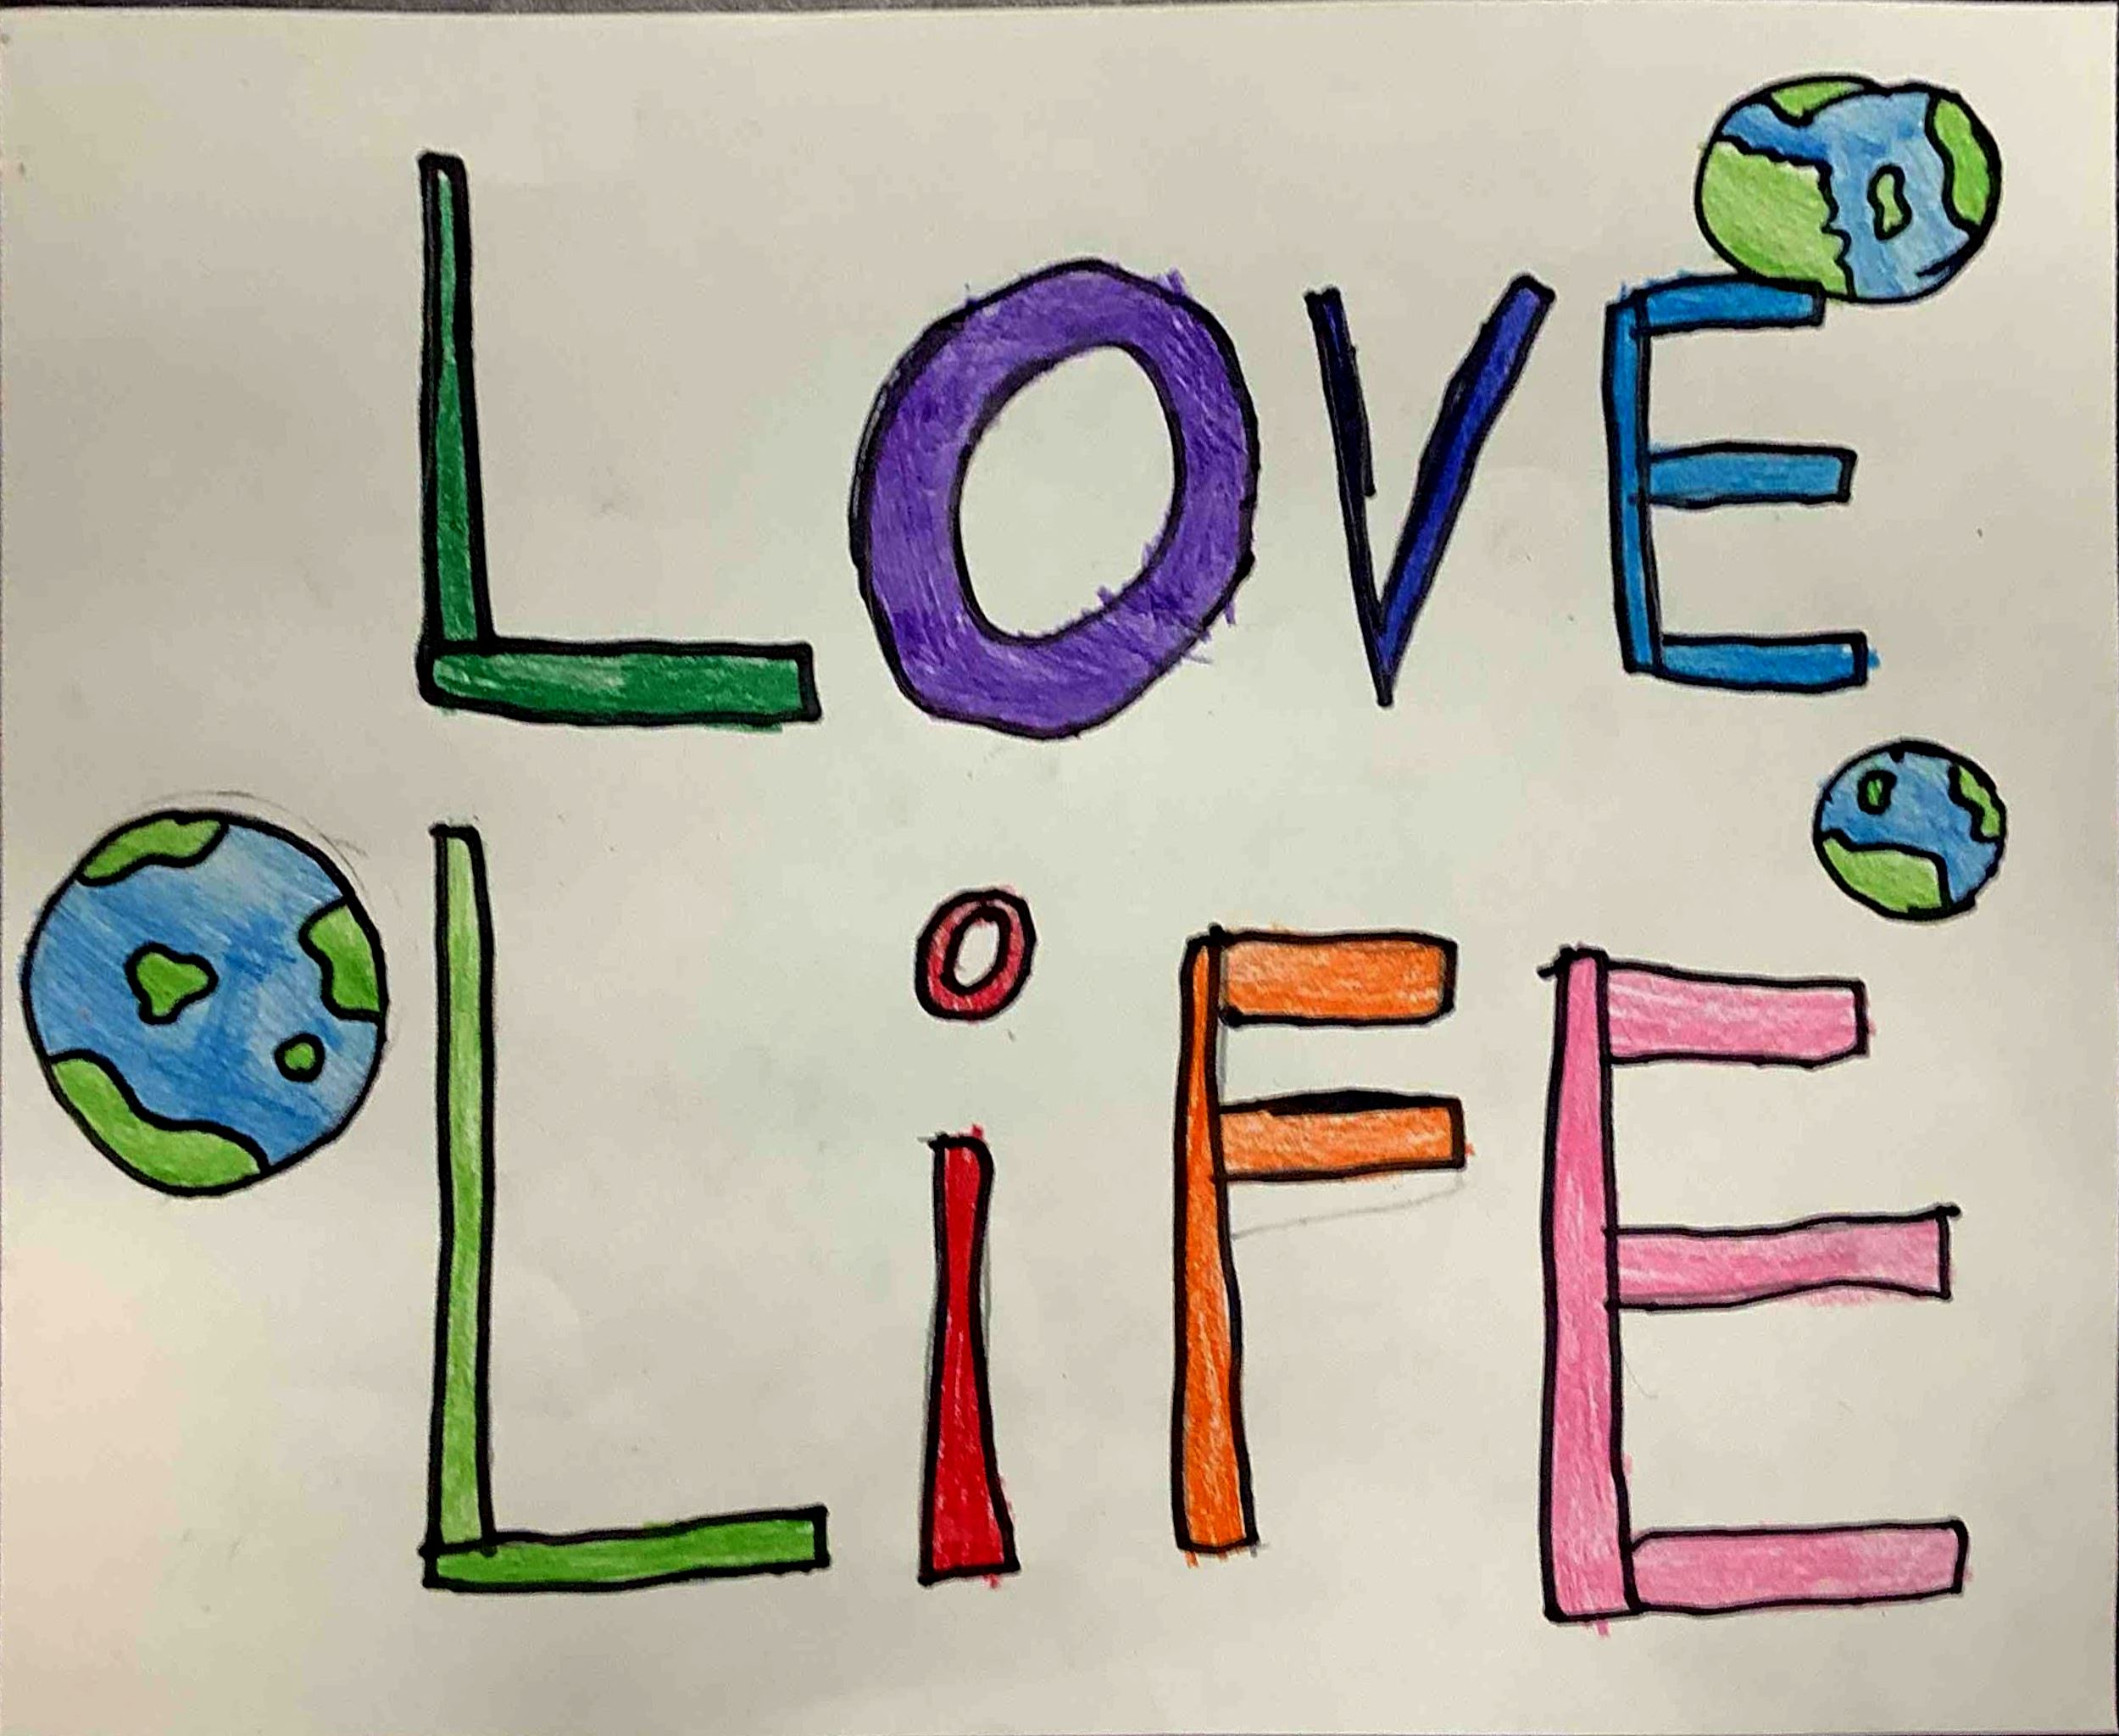 LOVE
LiFE